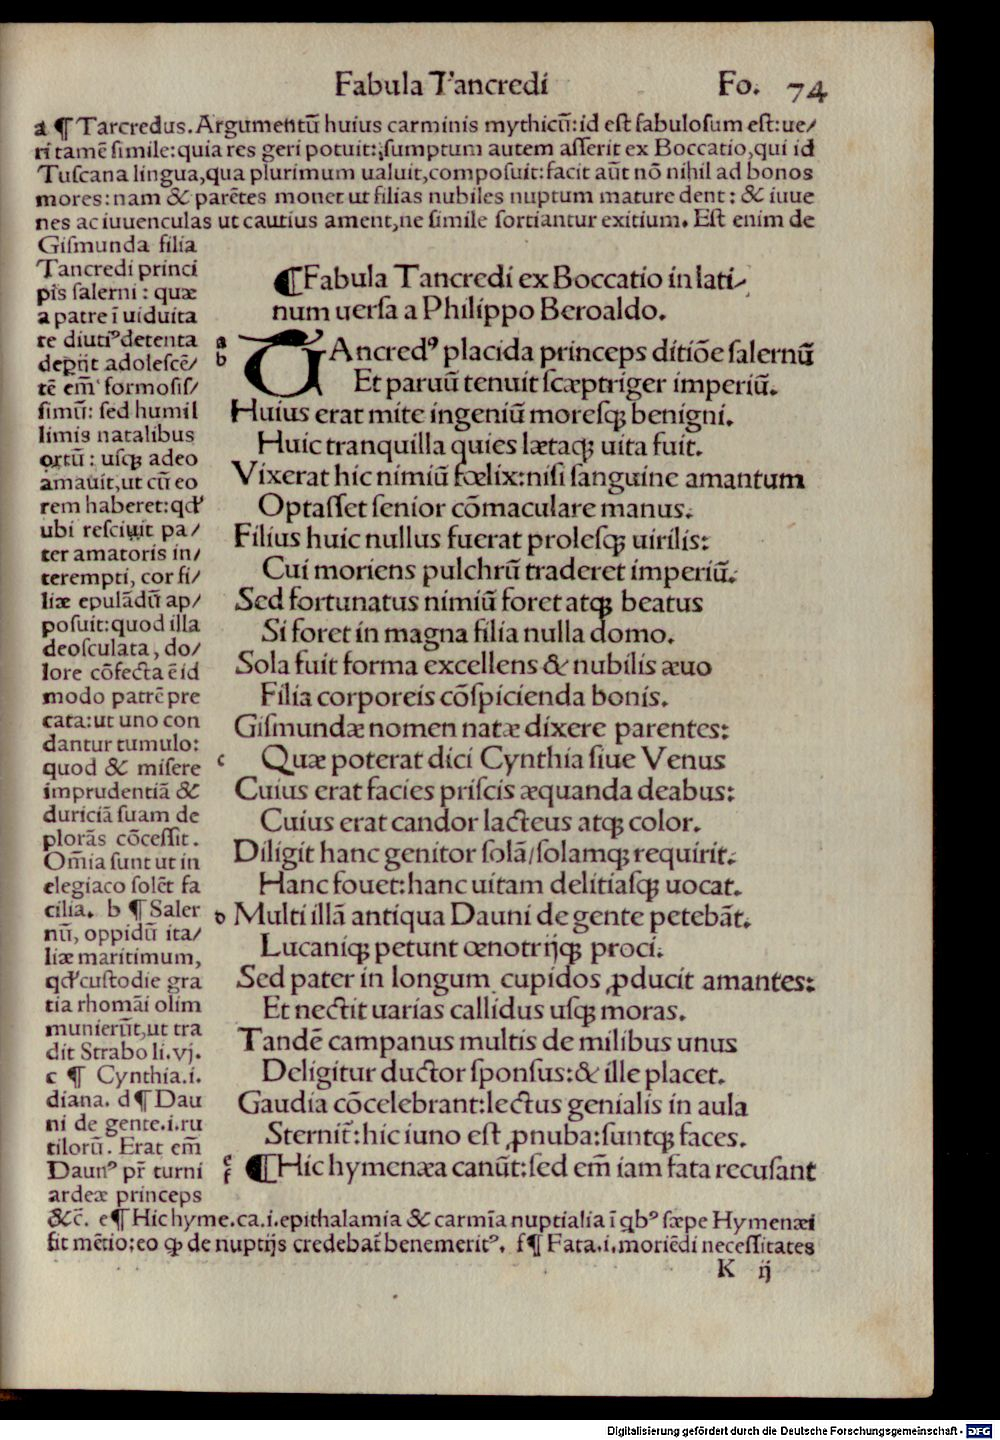 Fabula Tancredi Fo. 74
a ¶ Tarcredus. Argumentū huius carminis mythicū: id eſt fabuloſum eſt: ue/
ri tamē ſimile: quia res geri potuit: ſumptum autem aſſerit ex Boccatio, qui id
Tuſcana lingua, qua plurimum ualuit, compoſuit: facit aūt nō nihil ad bonos
mores: nam & parētes monet ut filias nubiles nuptum mature dent: & iuue
nes ac iuuenculas ut cautius ament, ne ſimile ſortiantur exitium. Eſt enim de
Giſmunda filia
Tancredi princi
pis ſalerni: quæ
a patre ī uiduita
te diutiꝰ detenta
deperijt adoleſcē/
tē em̄ formoſiſ/
ſimū: ſed humil
limis natalibus
ortū: uſqꝫ adeo
amauit, ut cū eo
rem haberet: qđ
ubi reſciuit pa/
ter amatoris in/
terempti, cor fi/
liæ epulādū ap/
poſuit: quod illa
deoſculata, do/
lore cōfecta ē id
modo patrē pre
cata: ut uno con
dantur tumulo:
quod & miſere
imprudentiā &
duriciā ſuam de
plorās cōceſſit.
Om̄ia ſunt ut in
elegiaco ſolēt fa
cilia. b ¶ Saler
nū, oppidū ita/
liæ maritimum,
qđ cuſtodie gra
tia rhomāi olim
munierūt, ut tra
dit Strabo li. vj.
c ¶ Cynthia .i.
diana. d ¶ Dau
ni de gente .i. ru
tilorū. Erat em̄
Daunꝰ pr̄ turni
ardeæ princeps
&c̄. e ¶ Hic hyme. ca .i. epithalamia & carmīa nuptialia ī qbꝰ ſæpe Hymenæi
ſit mētio: eo ꝙ de nuptijs credebat̄ benemeritꝰ. f ¶ Fata .i. moriēdi neceſſitates
¶ Fabula Tancredi ex Boccatio in lati/
num uerſa a Philippo Beroaldo.
a TAncredꝰ placida princeps ditiōe ſalernū
b Et paruū tenuit ſcæptriger imperiū.
Huius erat mite ingeniū moreſqꝫ benigni.
Huic tranquilla quies lætaqꝫ uita fuit.
Vixerat hic nimiū fœlix: niſi ſanguine amantum
Optaſſet ſenior cōmaculare manus.
Filius huic nullus fuerat proleſqꝫ uirilis:
Cui moriens pulchrū traderet imperiū.
Sed fortunatus nimiū foret atqꝫ beatus
Si foret in magna filia nulla domo.
Sola fuit forma excellens & nubilis æuo
Filia corporeis cōſpicienda bonis.
Giſmundæ nomen natæ dixere parentes:
c Quæ poterat dici Cynthia ſiue Venus
Cuius erat facies priſcis æquanda deabus:
Cuius erat candor lacteus atqꝫ color.
Diligit hanc genitor ſolā/ſolamqꝫ requirit.
Hanc fouet: hanc uitam delitiaſqꝫ uocat.
d Multi illā antiqua Dauni de gente petebāt.
Lucaniqꝫ petunt œnotrijqꝫ proci.
Sed pater in longum cupidos ꝓducit amantes:
Et nectit uarias callidus uſqꝫ moras.
Tandē campanus multis de milibus unus
Deligitur ductor ſponſus: & ille placet.
Gaudia cōcelebrant: lectus genialis in aula
Sternit̄: hic iuno eſt ꝓnuba: ſuntqꝫ faces.
e f ¶ Hic hymenæa canūt: ſed em̄ iam fata recuſant
K ij
Digitalisierung gefördert durch die Deutsche Forschungsgemeinschaft - DFG